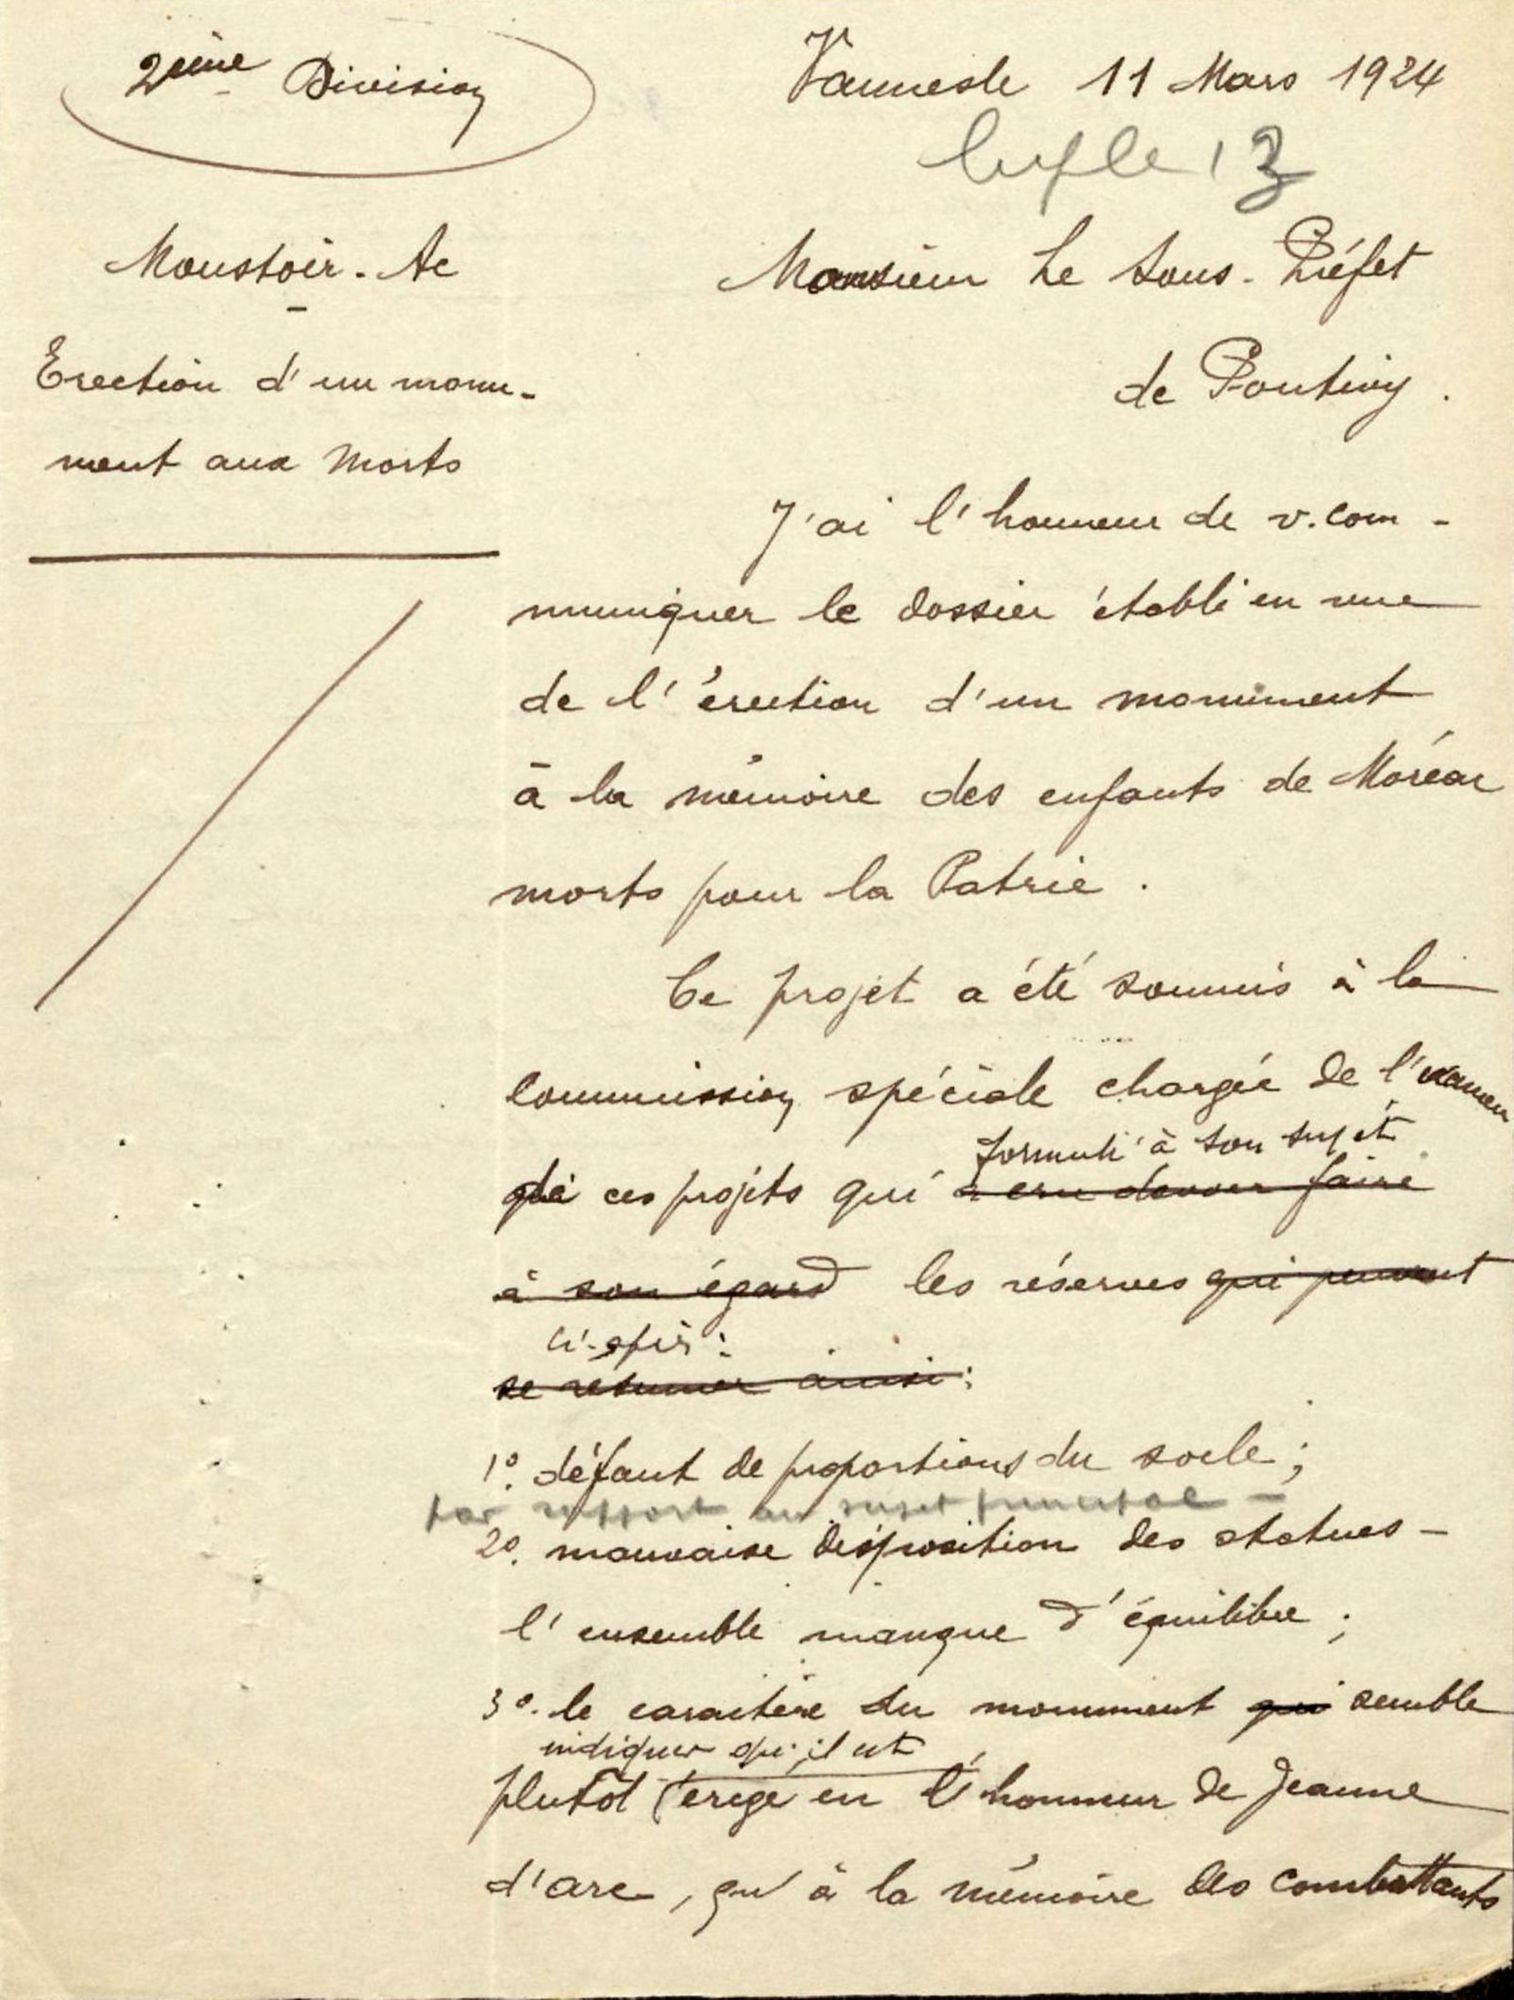 2ème Division
Vannes le 11 Mars 1924
le 13
Moustoir-Ac
Monsieur Le Sous-Préfet
de Pontivy.
Erection d'un monu-
ment aux Morts
J'ai l'honneur de v. com-
muniquer le dossier établi en vue
de l'érection d'un monument
à la mémoire des enfants de Moréac
morts pour la Patrie.
Ce projet a été soumis à la
Commission spéciale chargée de l'examen
de ces projets qui a cru devoir faire
formulé à son sujet
à son égard les réserves qui peuvent
ci-après :
se résumer ainsi :
1º. défaut de proportions du socle ;
par rapport au sujet principal -
2º. mauvaise disposition des statues -
l'ensemble manque d'équilibre ;
3º. le caractère du monument qui semble
indiquer qu'il est
plutôt érigé en l'honneur de Jeanne
d'arc, qu'à la mémoire des combattants